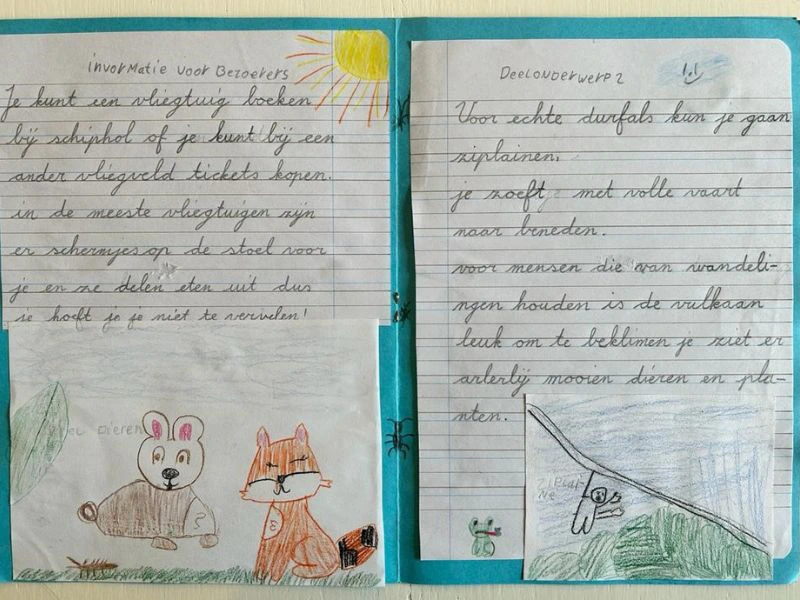 invorMatie voor Bezoekers
Je kunt een vliegtuig boeken
bij schiphol of je kunt bij een
ander vliegveld tickets kopen.
in de meeste vliegtuigen zijn
er schermjes op de stoel voor
je en ze delen eten uit dus
je hoeft je je niet te vervelen!
Dieren
Deelonderwerp 2
Voor echte durfals kun je gaan
ziplainen.
je zoeft met volle vaart
naar beneden.
voor mensen die van wandeli-
ngen houden is de vulkaan
leuk om te beklimen je ziet er
arlerlij mooien diéren en pla-
nten.